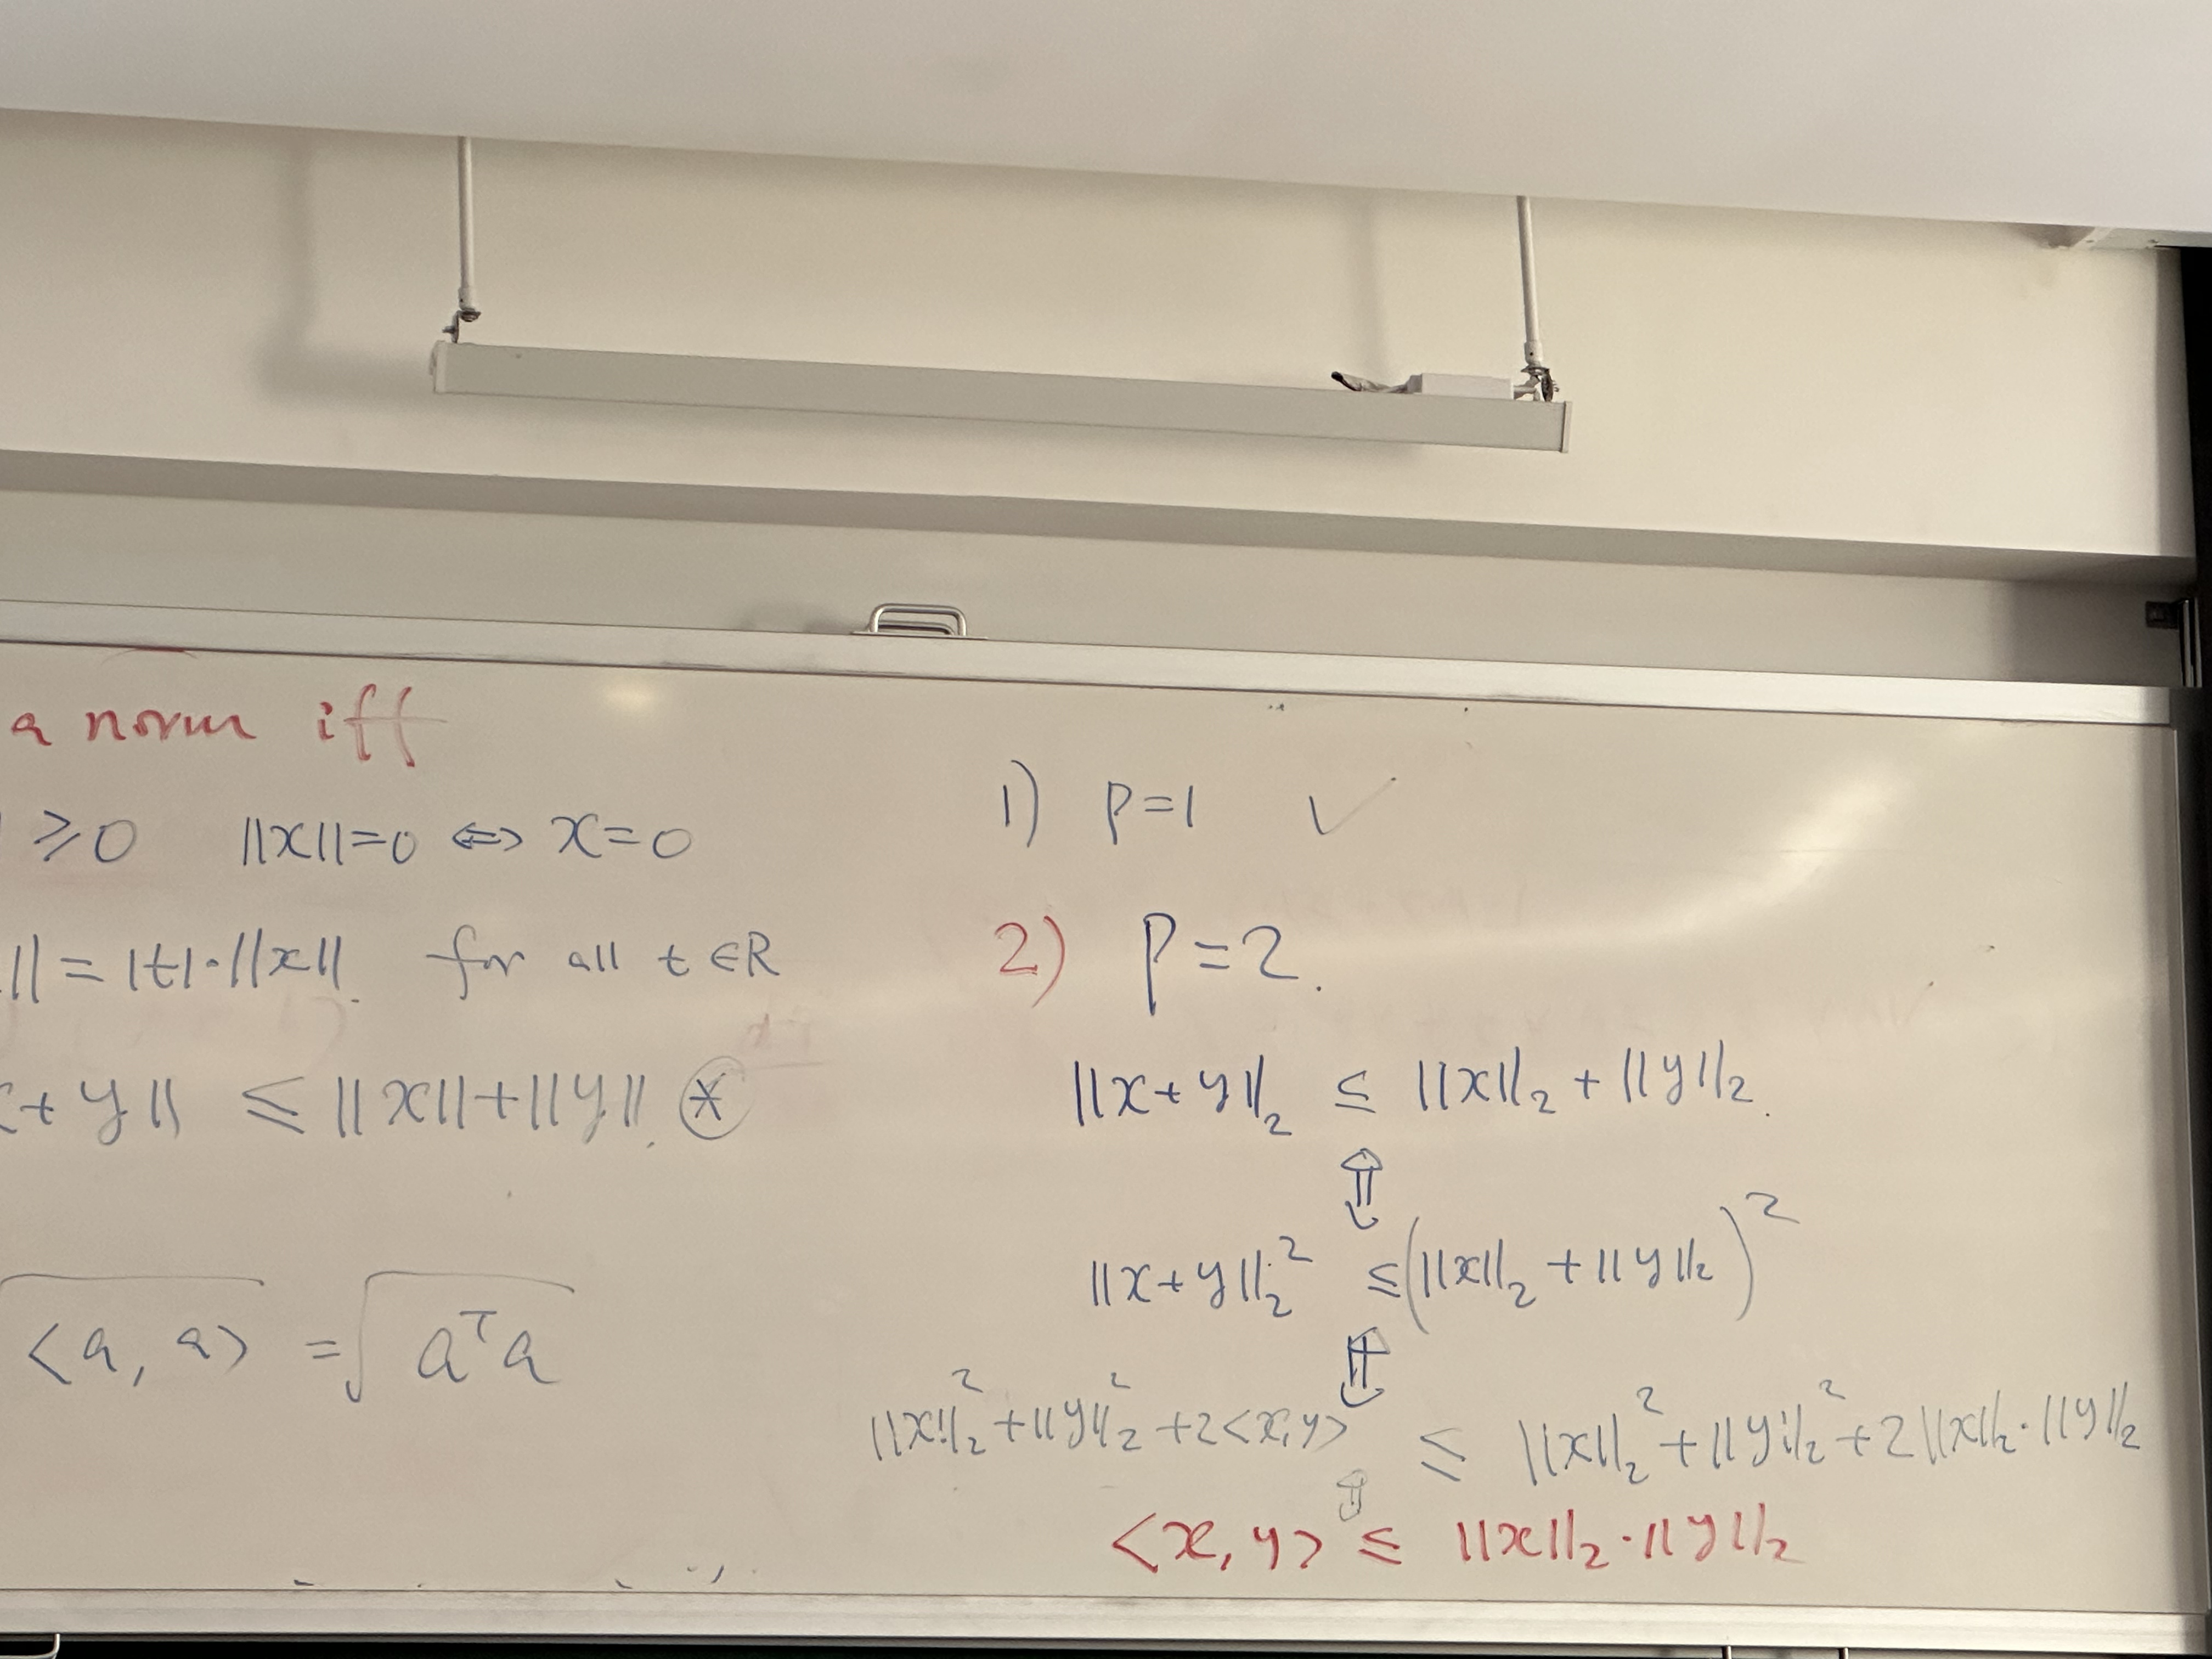 a norm iff
≥0 ||x||=0 ⇔ x=0
||=|t|·||x||. for all t∈R
+y|| ≤ ||x||+||y||. ⊛
√<a, a> = √aᵀa
1) p=1 ✓
2) p=2.
||x+y||₂ ≤ ||x||₂ + ||y||₂.
⇕
||x+y||₂² ≤ (||x||₂ + ||y||₂)²
⇕
||x||₂² + ||y||₂² + 2<x,y> ≤ ||x||₂² + ||y||₂² + 2||x||₂·||y||₂
⇕
<x, y> ≤ ||x||₂·||y||₂